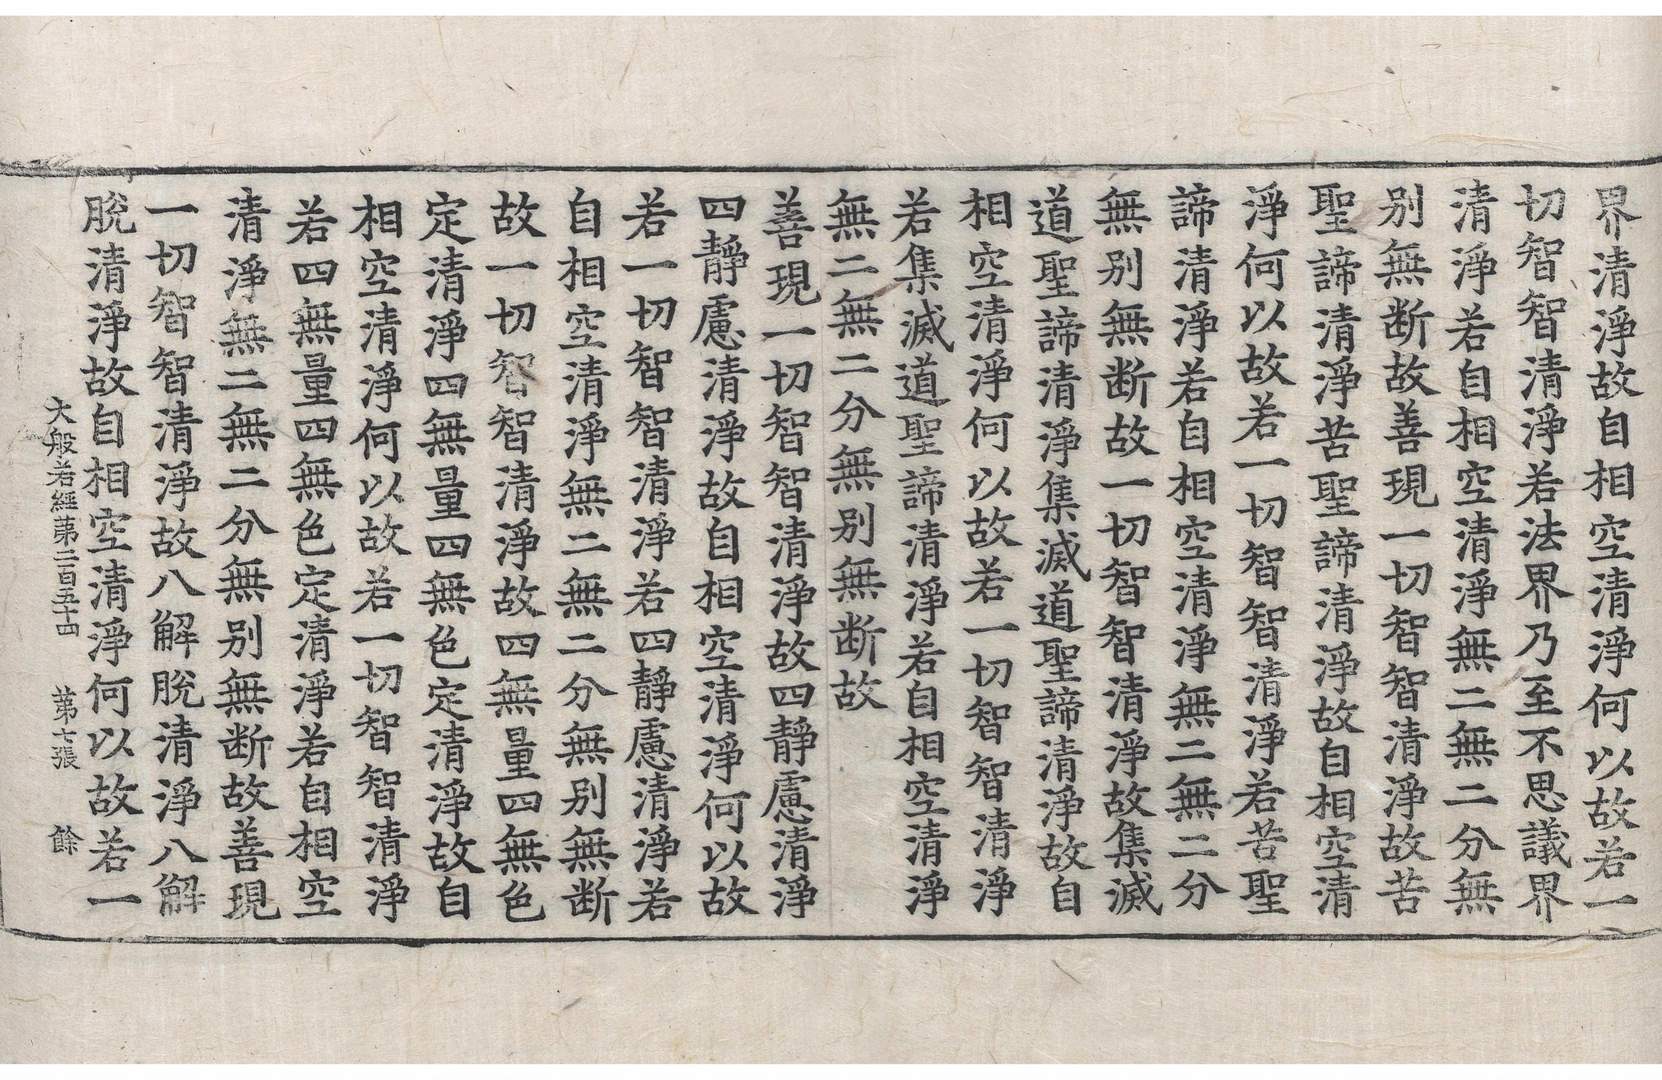 界清淨故自相空清淨何以故若一
切智智清淨若法界乃至不思議界
清淨若自相空清淨無二無二分無
别無断故善現一切智智清淨故苦
聖諦清淨苦聖諦清淨故自相空清
淨何以故若一切智智清淨若苦聖
諦清淨若自相空清淨無二無二分
無别無断故一切智智清淨故集滅
道聖諦清淨集滅道聖諦清淨故自
相空清淨何以故若一切智智清淨
若集滅道聖諦清淨若自相空清淨
無二無二分無别無断故
善現一切智智清淨故四靜慮清淨
四靜慮清淨故自相空清淨何以故
若一切智智清淨若四靜慮清淨若
自相空清淨無二無二分無别無断
故一切智智清淨故四無量四無色
定清淨四無量四無色定清淨故自
相空清淨何以故若一切智智清淨
若四無量四無色定清淨若自相空
清淨無二無二分無别無断故善現
一切智智清淨故八解脫清淨八解
脫清淨故自相空清淨何以故若一
大般若經第二百五十四 第七張 餘